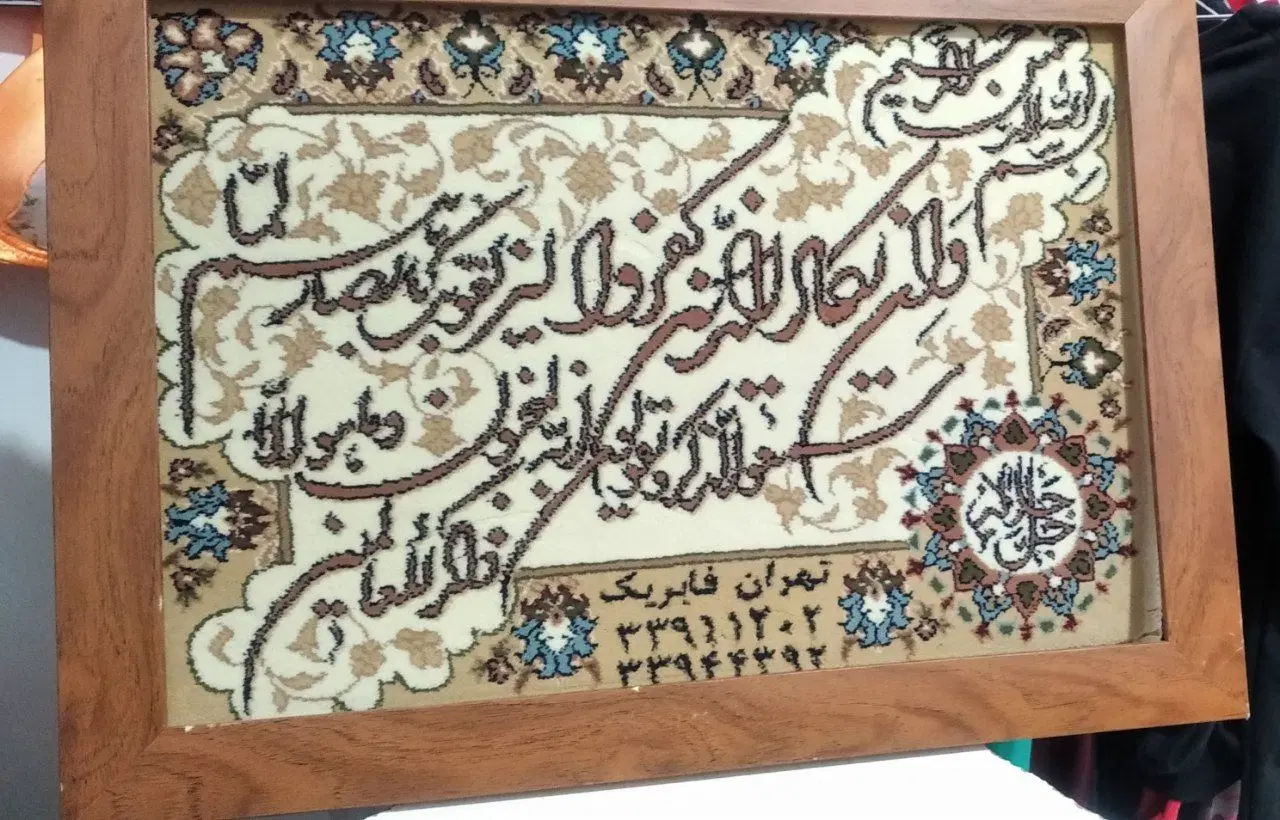 بسم الله الرحمن الرحیم
وان یکاد الذین کفروا لیزلقونک بابصارهم لما
سمعوا الذکر و یقولون انه لمجنون وما هو الا
ذکر للعالمین
جل جلاله
تهران فابریک
۳۳۹۱۱۲۰۲
۳۳۹۴۴۳۹۲